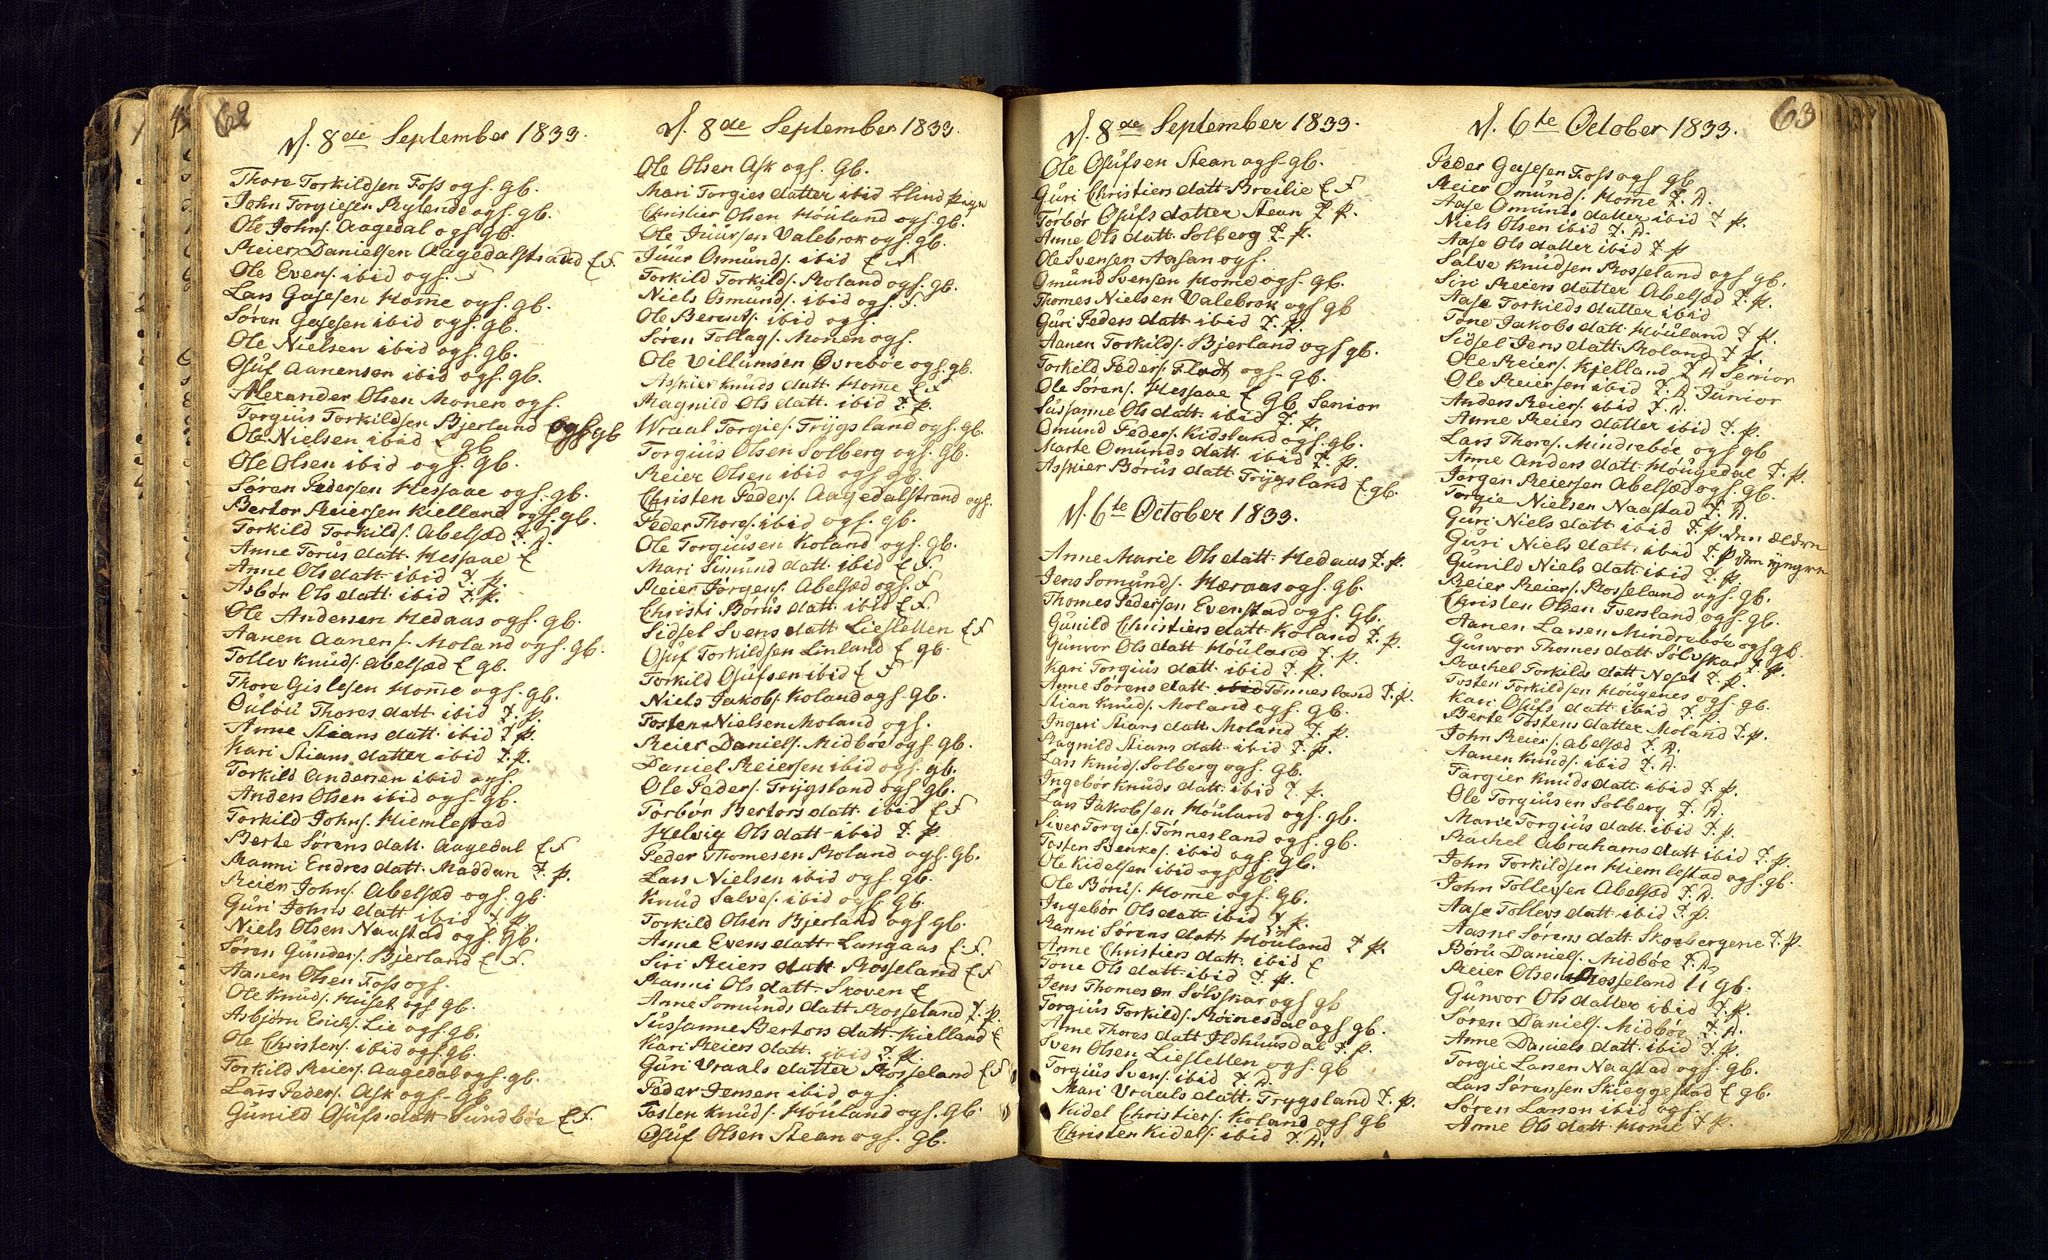 62
d. 8de September 1833.
Thore Torkildsen Foss ogf. gb.
John Torgiesen Rylende ogf. gb.
Ole Johns. Aagedal ogf. gb.
Reier Danielsen Aagedalstrand E F
Ole Evens. ibid ogf. F
Lars Gasesen Home ogf. gb.
Søren Gasesen ibid ogf. gb.
Ole Nielsen ibid ogf. gb.
Osuf Aanensen ibid ogf. gb.
Alexander Olsen Monen ogf.
Torgius Torkildsen Bjerland ogf gb
Ole Nielsen ibid E gb
Ole Olsen ibid ogf. gb.
Søren Pedersen Hessaae ogf. gb.
Bertor Reiersen Kielland ogf. gb.
Torkild Torkilds. Abelsæd T. D.
Anne Torus datt Hessaae E
Anne Ols datt ibid T. P.
Asbør Ols datt. ibid T. P.
Ole Andersen Hedaas ogf. gb.
Aanen Aanens. Moland ogf. gb.
Tollev Knuds. Abelsæd E gb.
Thore Gislesen Home ogf. gb.
Oulou Thores datt ibid T. P.
Anne Steans datt ibid T. P.
Kari Stians datter ibid T. P.
Torkild Andersen ibid ogf.
Anders Olsen ibid ogf. gb.
Torkild Johns. Hiemlestad
Berte Sørens datt. Aagedal E F
Ranni Endres datt. Maddan T. P.
Reier Johns. Abelsæd ogf. gb.
Guri Johns datt ibid T. P.
Niels Olsen Naastad ogf. gb.
Søren Gunders. Bjerland E F.
Aanen Olsen Foss ogf.
Ole Knuds. Huset ogf gb.
Asbjørn Erichs. Lie ogf. gb.
Ole Christens. ibid ogf. gb.
Torkild Reiers. Aagedal ogf. gb.
Lars Peders. Ask ogf. gb
Gunild Osufs. datt Sundbøe E F.
d. 8de September 1833.
Ole Olsen Ask ogf. Gb.
Mari Torgies datter ibid blind Pige
Christier Olsen Houland ogf. gb.
Ole Juursen Valebrok ogf. gb.
Juur Osmunds. ibid E F
Torkild Torkilds. Roland ogf. gb.
Niels Osmunds. ibid ogf. F
Ole Berents. ibid ogf.
Søren Tollags. Monen ogf.
Ole Villumsen Øvrebøe ogf. gb.
Asskier Knuds datt. Home E F
Magnild Ols datt. ibid T. P.
Wraal Torgies. Trygsland ogf. gb.
Torgius Olsen Solberg ogf. gb.
Reier Olsen ibid ogf. gb.
Christen Peders. Aagedalstrand ogf.
Peder Thores. ibid ogf. gb.
Ole Torgiusen Koland ogf. gb.
Mari Simund datt ibid E F.
Reier Jørgens. Abelsæd ogf. F
Christi Børus datt. ibid E F.
Sidsel Svens datt Liesletten E F
Osuf Torkildsen Linland E gb.
Torkild Osufsen ibid E F
Niels Jakobs. Koland ogf gb.
Tosten Nielsen Moland ogf.
Reier Daniels. Midbøe ogf. gb.
Daniel Reiersen ibid ogf. gb.
Ole Peders. Trygsland ogf gb.
Torbør Bertors datt. ibid E F
Helvig Ols datt ibid T. P
Peder Thomesen Roland ogf. gb.
Lars Nielsen ibid ogf. gb.
Knud Salves. ibid ogf. gb.
Torkild Olsen Bjerland ogf gb.
Anne Evens datt Langaas E F.
Siri Reiers datt Rosseland E F
Ranni Ols datt. Skoven E
Anne Somunds datt Rosseland T. P.
Sussanne Bertors datt Kielland E
Kari Reiers datt. ibid T. P.
Guri Vraals datter Rosseland E F
Peder Jensen ibid ogf.
Tosten Knuds. Houland ogf. gb.
Osuf Olsen Stean ogf. gb.
d. 8de September 1833.
Ole Osufsen Stean ogf. gb.
Guri Christiers datt Breilie E F
Torbør Osufs datter Stean T. P.
Anne Ols datt. Solberg T. P.
Ole Svensen Aasan ogf.
Omund Svensen Home ogf. gb.
Thomes Nielsen Valebrok ogf gb
Guri Peders datt ibid T. P.
Aanen Torkilds. Bjerland ogf gb.
Torkild Peders. Flodt ogf. gb.
Ole Sørens. Hessaae E gb Senior
Sussanne Ols datt ibid T. P.
Omund Peders. Kidsland ogf. gb.
Marte Omunds datt ibid T. P.
Asskier Børus datt Trygsland E. gb.
d. 6te October 1833.
Anne Marie Ols datt. Hedaas T. P.
Jens Somunds. Heraas ogf. gb.
Thomes Pedersen Evenstad ogf. gb.
Gunild Christiers datt Koland T. P.
Gunvor Ols datt Houland T. P.
Kari Torgius datt ibid T. P.
Anne Sørens datt ibid Tønnesland T. P.
Stian Knuds. Moland ogf. gb.
Ingeri Stians datt Moland T. P.
Ragnild Stians datt ibid T. P.
Lars Knuds. Solberg ogf. gb.
Ingebør Knuds datt. ibid T. P.
Lars Jakobsen Houland ogf. gb.
Siver Torgies. Tønnesland ogf. gb.
Tosten Benkes. ibid ogf. gb.
Ole Kidelsen ibid ogf gb.
Ole Børus. Home ogf. gb.
Ingebør Ols datt ibid T. P.
Ranni Sørens datt Houland T. P.
Anne Christiers datt. ibid E
Tone Ols datt ibid T. P.
Jens Thomesen Solvskar ogf gb
Torgius Torkilds. Røinesdal ogf gb.
Anne Thores datt Ildhuusdal T. P.
Sven Olsen Liesletten ogf. gb
Torgius Svens. ibid T. D.
Mari Vraals datt. Trygsland T. P.
Kidel Christiers. Koland ogf gb
Christen Kidels. ibid T. D.
63
d. 6te October 1833.
Peder Gasesen Foss ogf gb
Reier Omunds. Home T. D.
Aase Omunds datter ibid T. P.
Niels Olsen ibid T. D.
Aase Ols datter ibid T. P
Salve Knudsen Rosseland ogf gb.
Siri Reiers datter Abelsæd T. P.
Aase Torkilds datter ibid
Tone Jakobs datt Houland T. P.
Sidsel Jens datt Roland T. P.
Ole Reiers. Kjelland T. D Senior
Ole Reiersen ibid T. D Junior
Anders Reiers. ibid T. D.
Anne Reiers datter ibid T. P.
Lars Thores. Mindrebøe ogf gb
Anne Anders datt Hougedal T. P.
Jørgen Reiersen Abelsæd ogf. gb.
Torgie Nielsen Naastad T. D.
Guri Niels datt ibid T. P. den ældre
Guri Niels datt. ibid T. P den yngre
Gunild Niels datt ibid T. P.
Reier Reiers. Rosseland ogf. gb.
Christen Olsen Tversland ogf. gb.
Aanen Larsen Mindrebøe ogf gb
Gunvor Thomes datt Solvskar T. P.
Rachel Torkilds datt Neset T. P.
Tosten Torkildsen Hougenes ogf. gb.
Kari Osufs datt ibid T. P.
Berte Tostens datter Moland T. P.
John Reiers. Abelsæd T. D.
Aanen Knuds. ibid T. D.
Targier Knuds datt ibid T. P.
Ole Torgiusen Solberg T. D.
Marie Torgius datt. ibid T. P.
Rachel Abrahams datt ibid T. P.
John Torkildsen Hiemlestad ogf. gb.
John Tollevsen Abelsæd T. D.
Aase Tollevs datt. ibid T. P.
Aasne Sørens datt Skabergene T. P.
Børu Daniels. Midbøe T. D
Reier Olsen Rosseland U gb.
Gunvor Ols datter ibid T. P.
Søren Daniels. Midbøe T. D.
Anne Daniels datt. ibid T. P.
Torgie Larsen Naastad ogf. gb.
Lars Sørensen Skieggestad E gb.
Søren Larsen ibid ogf.
Anne Ols datt Home T. P.